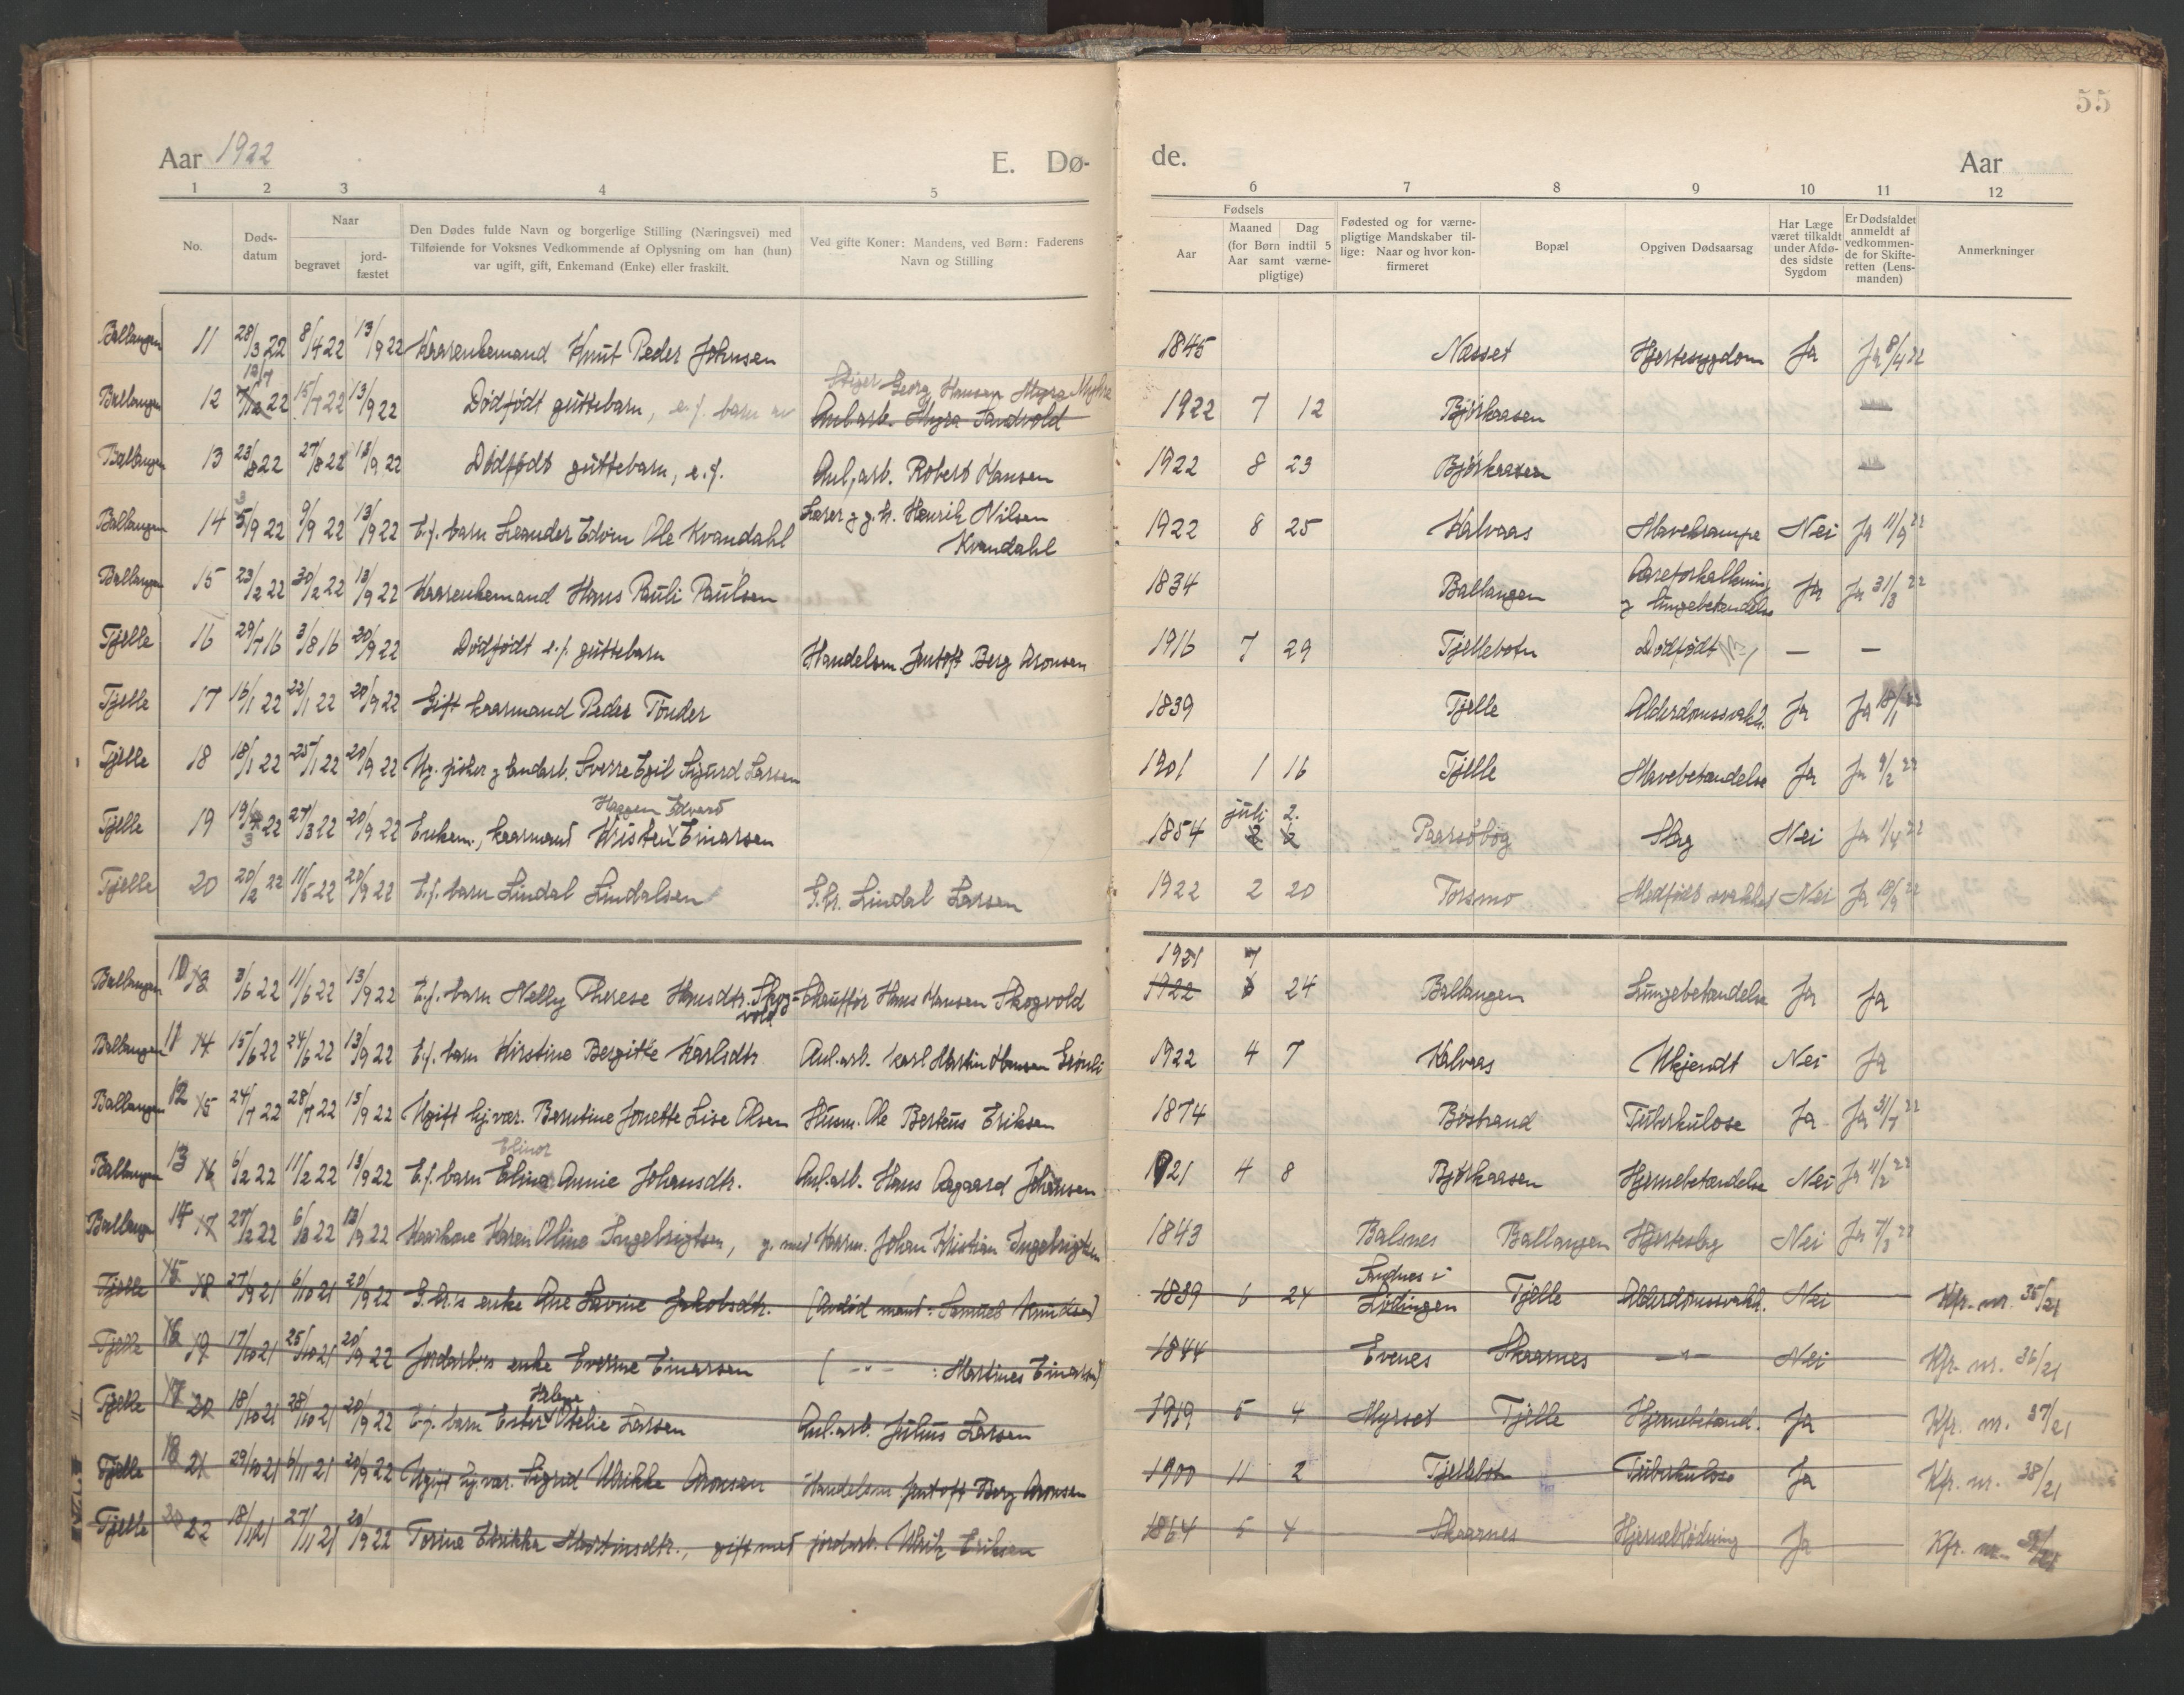 55
Aar 1922 E. Dø- de. Aar
1 2 3 4 5 6 7 8 9 10 11 12
No.
Døds-
datum
Naar
begravet
jord-
fæstet
Den Dødes fulde Navn og borgerlige Stilling (Næringsvei) med
Tilføiende for Voksnes Vedkommende af Oplysning om han (hun)
var ugift, gift, Enkemand (Enke) eller fraskilt.
Ved gifte Koner: Mandens, ved Børn: Faderens
Navn og Stilling
Fødsels
Aar
Maaned Dag
(for Børn indtil 5
Aar samt værne-
pligtige)
Fødested og for værne-
pligtige Mandskaber til-
lige: Naar og hvor kon-
firmeret
Bopæl
Opgiven Dødsaarsag
Har Læge
været tilkaldt
under Afdø-
des sidste
Sygdom
Er Dødsfaldet
anmeldt af
vedkommen-
de for Skifte-
retten (Lens-
manden)
Anmerkninger
Ballangen 11 28/3 22 8/4 22 13/9 22 Kaarenkemand Knut Peder Johnsen 1845 Næsset Hjertesygdom Ja Ja 8/4 22
12/7 Stiger Georg Hansen Myhre
Ballangen 12 22 15/7 22 13/9 22 Dødfødt guttebarn, e.f. barn av Anl.arb. Sandvold 1922 7 12 Bjørkaasen —
Ballangen 13 23/8 22 27/8 22 13/9 22 Dødfødt guttebarn, e.f. Anl.arb. Robert Hansen 1922 8 23 Bjørkaasen —
Ballangen 14 5/9 22 9/9 22 13/9 22 E.f. barn Leander Edvin Ole Kvandahl Lærer g g.br. Henrik Nilsen
Kvandahl 1922 8 25 Kalvaas Mavekrampe Nei Ja 11/9 22
Ballangen 15 23/2 22 30/2 22 13/9 22 Kaarenkemand Hans Pauli Paulsen 1834 Ballangen Aareforkalkning
g lungebetændelse Ja Ja 31/3 22
Tjelle 16 29/7 16 3/8 16 20/9 22 Dødfødt e.f. guttebarn Handelsm. Jentoft Berg Aronsen 1916 7 29 Tjellebotn Dødfødt — —
Tjelle 17 16/1 22 22/1 22 20/9 22 Gift kaarmand Peder Tønder 1839 Tjelle Alderdomssvakh. Ja Ja 18/1 22
Tjelle 18 18/1 22 25/1 22 20/9 22 Ug. fisker g landarb. Sverre Egil Sigurd Larsen 1901 1 16 Tjelle Mavebetændelse Ja Ja 9/2 22
Haagen Edvard juli 2.
Tjelle 19 19/3 22 27/3 22 20/9 22 Enkem., kaarmand Kristen Einarsen 1854 Slag Nei Ja 1/4 22
Tjelle 20 20/2 22 11/5 22 20/9 22 E.f. barn Lindal Lindalsen G.br. Lindal Larsen 1922 2 20 Torsmo Medfødt svakhet Nei Ja 18/9 22
1921 7
Ballangen 10 18 3/6 22 11/6 22 13/9 22 E.f. barn Nelly Therese Hansdtr. Skog-
vold Skauffør Hans Hansen Skogvold 1922 24 Ballangen Lungebetændelse Ja Ja
Ballangen 11 14 15/6 22 24/6 22 13/9 22 E.f. barn Kirstine Bergitte Karlsdtr. Anl.arb. Karl Martin Hansen Grønli 1922 4 7 Kalvaas Ukjendt Nei Ja
Ballangen 12 15 24/7 22 28/7 22 13/9 22 Ugift hj.vær. Berntine Jonette Lise Olsen Husm. Ole Berteus Eriksen 1874 Bøstrand Tuberkulose Ja Ja 31/7 22
Elinor
Ballangen 13 16 6/2 22 11/2 22 13/9 22 E.f. barn Elina Annie Johansdtr. Anl.arb. Hans Aagaard Johansen 1921 4 8 Bjørkaasen Hjernebetændelse Nei Ja 11/2 22
Ballangen 14 17 27/2 22 6/3 22 13/9 22 Kaarkone Karen Oline Ingebrigtsen, g. med Kaarm. Johan Kristian Ingebrigtsen 1843 Balsnes Ballangen Hjerteslag Nei Ja 7/3 22
Sandnes i
Tjelle 15 18 27/9 21 6/10 21 20/9 22 G.br.s enke Ane Lavine Jakobsdtr. (Avdød mand: Samuel Knudsen) 1839 6 24 Lødingen Tjelle Alderdomssvakh. Nei Kfr. nr. 35/21
Tjelle 16 19 17/10 21 25/10 21 20/9 22 Jordarb.s enke Everine Einarsen ( -"- : Martines Einarsen) 1844 Evenes Skaarnes -"- Nei Kfr. nr. 36/21
Helene
Tjelle 17 20 18/10 21 28/10 21 20/9 22 E.f. barn Ester Otelie Larsen Anl.arb. Julius Larsen 1919 5 4 Myrset Tjelle Hjernebetænd. Ja Kfr. nr. 37/21
Tjelle 18 21 29/10 21 6/11 21 20/9 22 Ugift hj.vær. Sigrid Ulrikke Aronsen Handelsm. Jentoft Berg Aronsen 1900 11 2 Tjellebotn Tuberkulose Ja Kfr. nr. 38/21
Tjelle 22 18/11 21 27/11 21 20/9 22 Martinsdtr., gift med jordarb. Ulrik Eriksen 1864 5 4 Skaarnes Hjerneblødning Ja Kfr. nr.